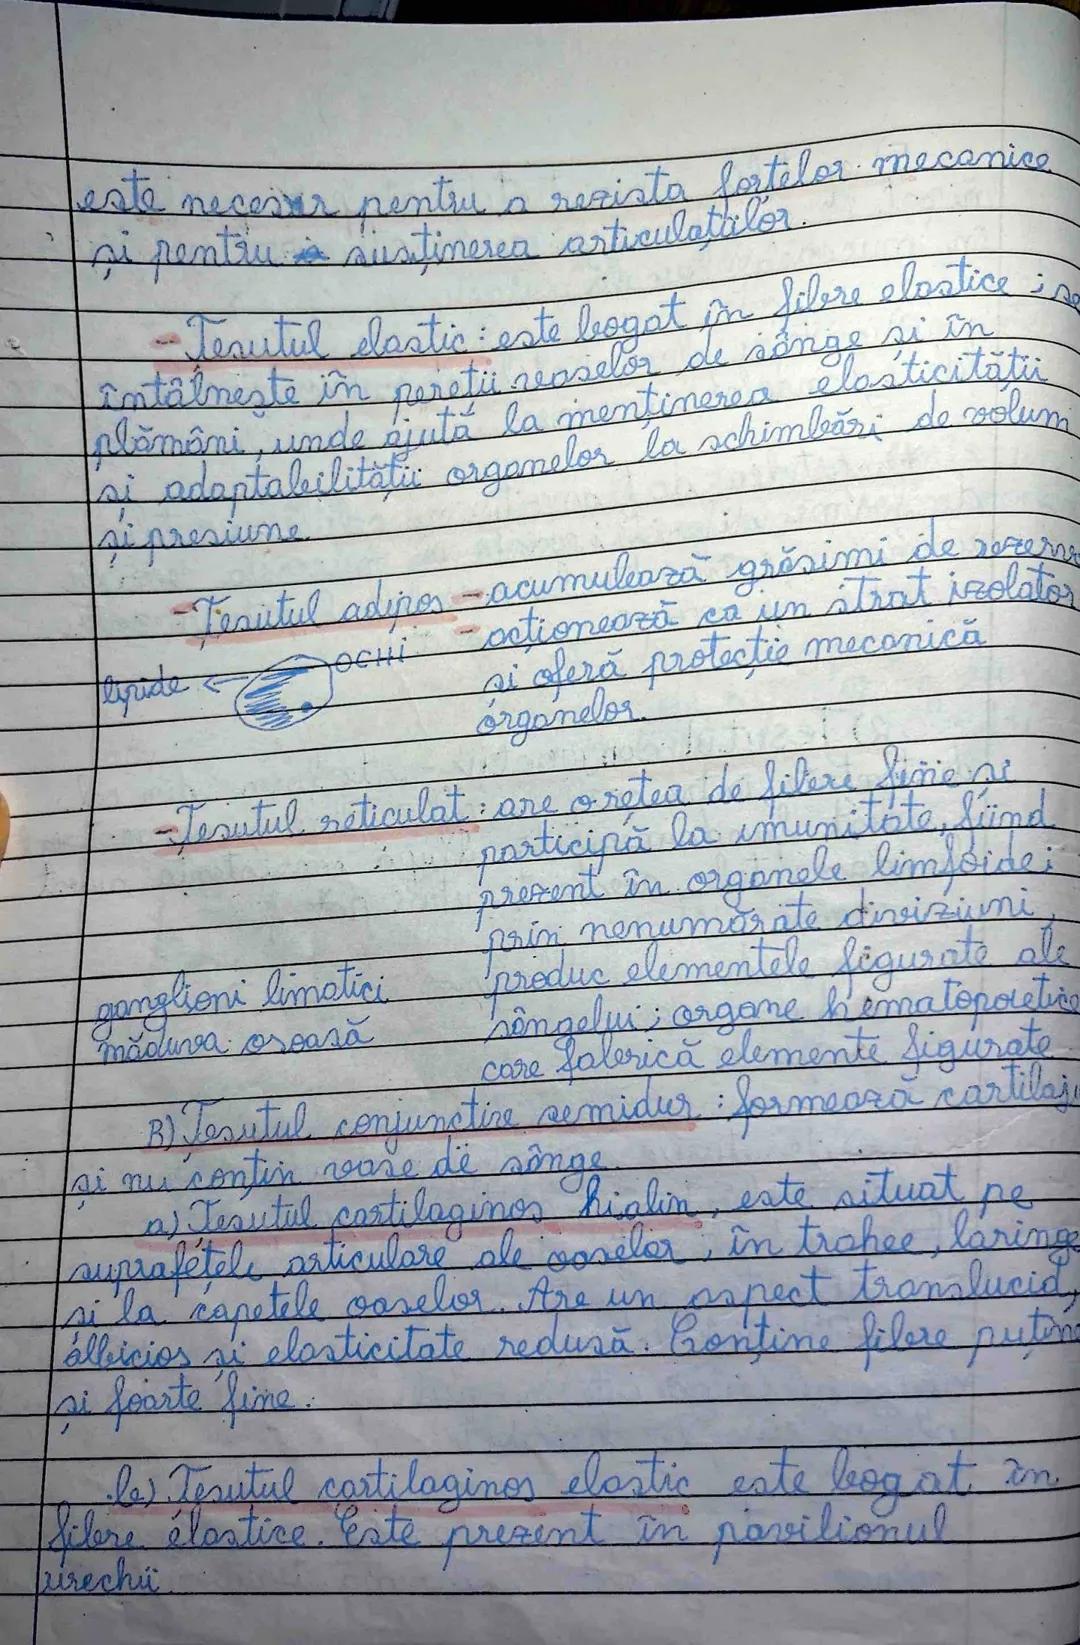 este necesar pentru a rezista forțelor mecanice
și pentru susținerea articulațiilor.
- Țesutul elastic: este bogat în fibre elastice; se
întâlnește în pereții vaselor de sânge si în
plămâni, unde ajută la menținerea elasticității
și adaptabilității organelor la schimbări de volum
și presiune.
- Țesutul adipos - acumulează grăsimi de rezervă
- acționează ca un strat izolator
OCHI
lipide
și oferă protecție mecanică
organelor.
- Țesutul reticulat: are o rețea de fibre fine și
participă la imunitate, fiind
prezent în organele limfoide;
prin nenumărate diviziuni,
produc elementele figurate ale
ganglioni limatici
sângelui; organe hematopoietice
măduva osoasă
care fabrică elemente figurate
B) Țesutul conjunctive semidur: formează cartilaju
și nu conțin vase de sânge.
a) Țesutul cartilaginos hialin, este situat pe
suprafețele articulare ale oaselor, în trahee, laringe
si la capetele oaselor. Are un aspect translucid,
albicios și elasticitate redusă. Conține fibre puține
și foarte fine.
b) Țesutul cartilaginos elastic este bogat în
fibre elastice. Este prezent în pavilionul
urechii.